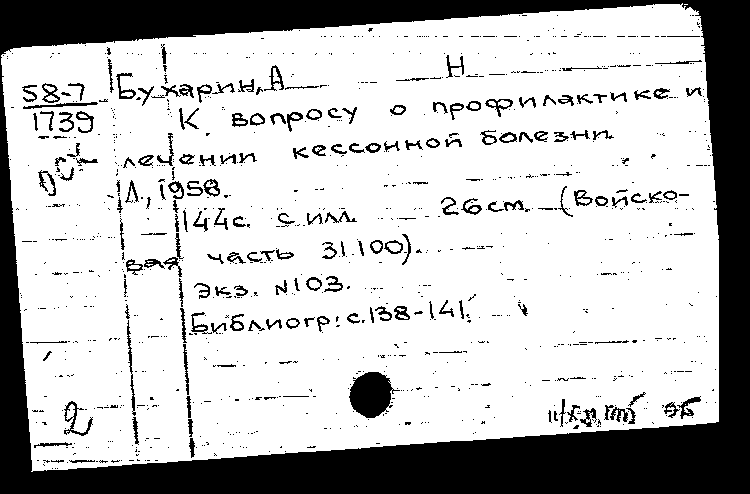 58-7
1739
Бухарин, А Н
К вопросу о профилактике и
лечении кессонной болезни.
Л., 1958.
144с. с илл. 26см. (Войско-
вая часть 31100).
Экз. №103.
Библиогр: с.138-141.
2